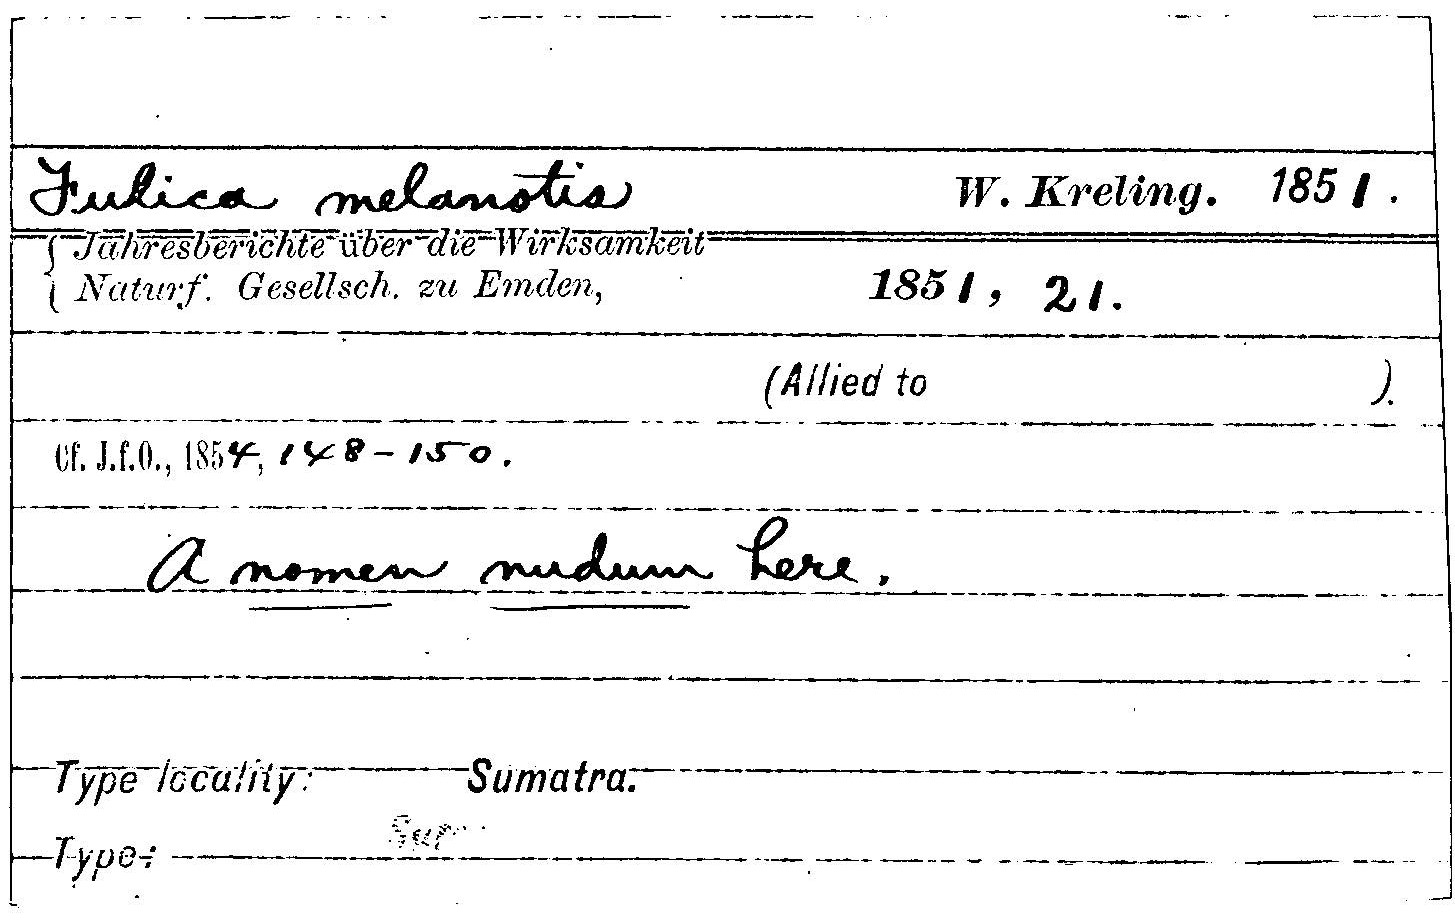 Fulica melanotis W. Kreling. 1851.
Jahresberichte über die Wirksamkeit
Naturf. Gesellsch. zu Emden, 1851, 21.
(Allied to ).
Cf. J.f.O., 1854, 148-150.
A nomen nudum here.
Type locality: Sumatra.
Type: